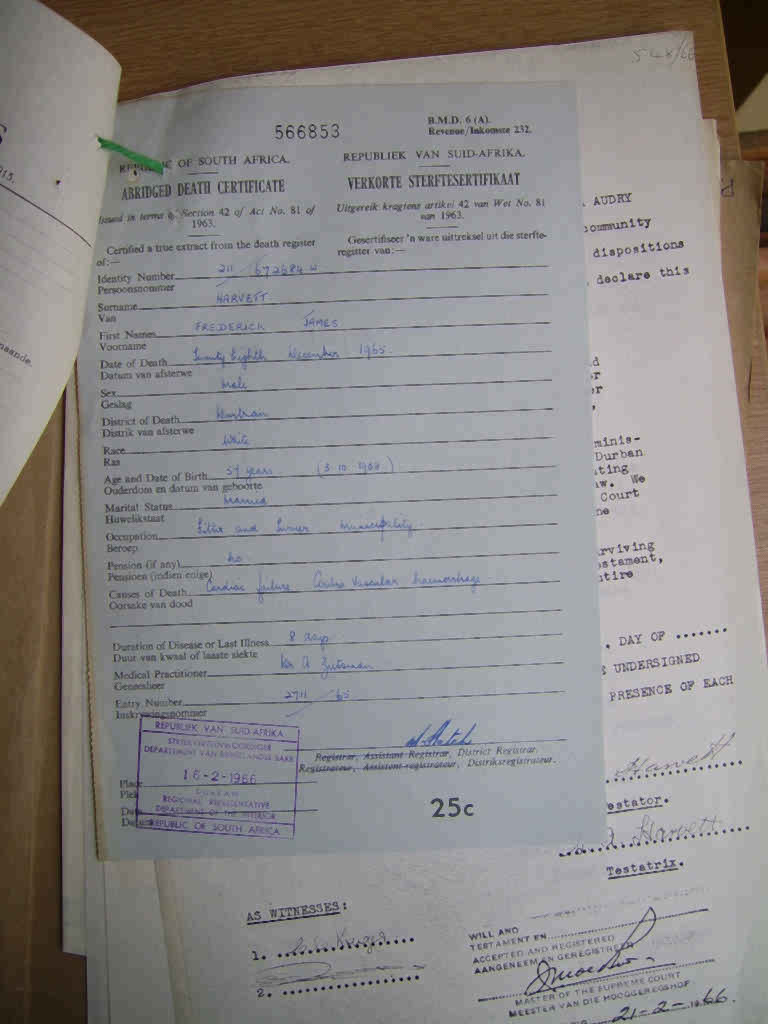 566853
B.M.D. 6 (A).
Revenue/Inkomste 232.
OF SOUTH AFRICA.
REPUBLIEK VAN SUID-AFRIKA.
ABRIDGED DEATH CERTIFICATE
VERKORTE STERFTESERTIFIKAAT
Issued in terms of Section 42 of Act No. 81 of
1963.
Uitgereik kragtens artikel 42 van Wet No. 81
van 1963.
Certified a true extract from the death register
of:—
Gesertifiseer 'n ware uittreksel uit die sterfte-
register van:—
Identity Number 211 / 672684 W
Persoonsnommer
Surname HARVETT
Van
First Names FREDERICK JAMES
Voorname
Date of Death Twenty Eighth December 1965.
Datum van afsterwe
Sex Male
Geslag
District of Death Durban
Distrik van afsterwe
Race White
Ras
Age and Date of Birth 57 years (3.10.1908)
Ouderdom en datum van geboorte
Marital Status Married
Huwelikstaat
Occupation Fitter and Turner Municipality
Beroep
Pension (if any) No
Pensioen (indien enige)
Causes of Death Cardiac failure Vascular haemorrhage
Oorsake van dood
Duration of Disease or Last Illness 8 days
Duur van kwaal of laaste siekte
Medical Practitioner Dr A
Geneesheer
Entry Number 2711 / 65
Inskrywingsnommer
REPUBLIEK VAN SUID-AFRIKA
DEPARTEMENT VAN BINNELANDSE SAKE
16-2-1966
DURBAN
REGIONAL REPRESENTATIVE
DEPARTMENT OF THE INTERIOR
REPUBLIC OF SOUTH AFRICA
Registrar, Assistant Registrar, District Registrar.
Registrateur, Assistent-registrateur, Distriksregistrateur.
Place
Plek
25c
AUDRY
community
dispositions
declare this
minis-
Durban
ating
aw. We
Court
rviving
stament,
tire
DAY OF .......
UNDERSIGNED
PRESENCE OF EACH
Harvett
estator.
Harvett
Testatrix.
AS WITNESSES:
1.
2.
WILL AND
TESTAMENT EN
ACCEPTED AND REGISTERED
AANGENEEM EN GEREGISTREER
MASTER OF THE SUPREME COURT
MEESTER VAN DIE HOOGGEREGSHOF
21-2-1966